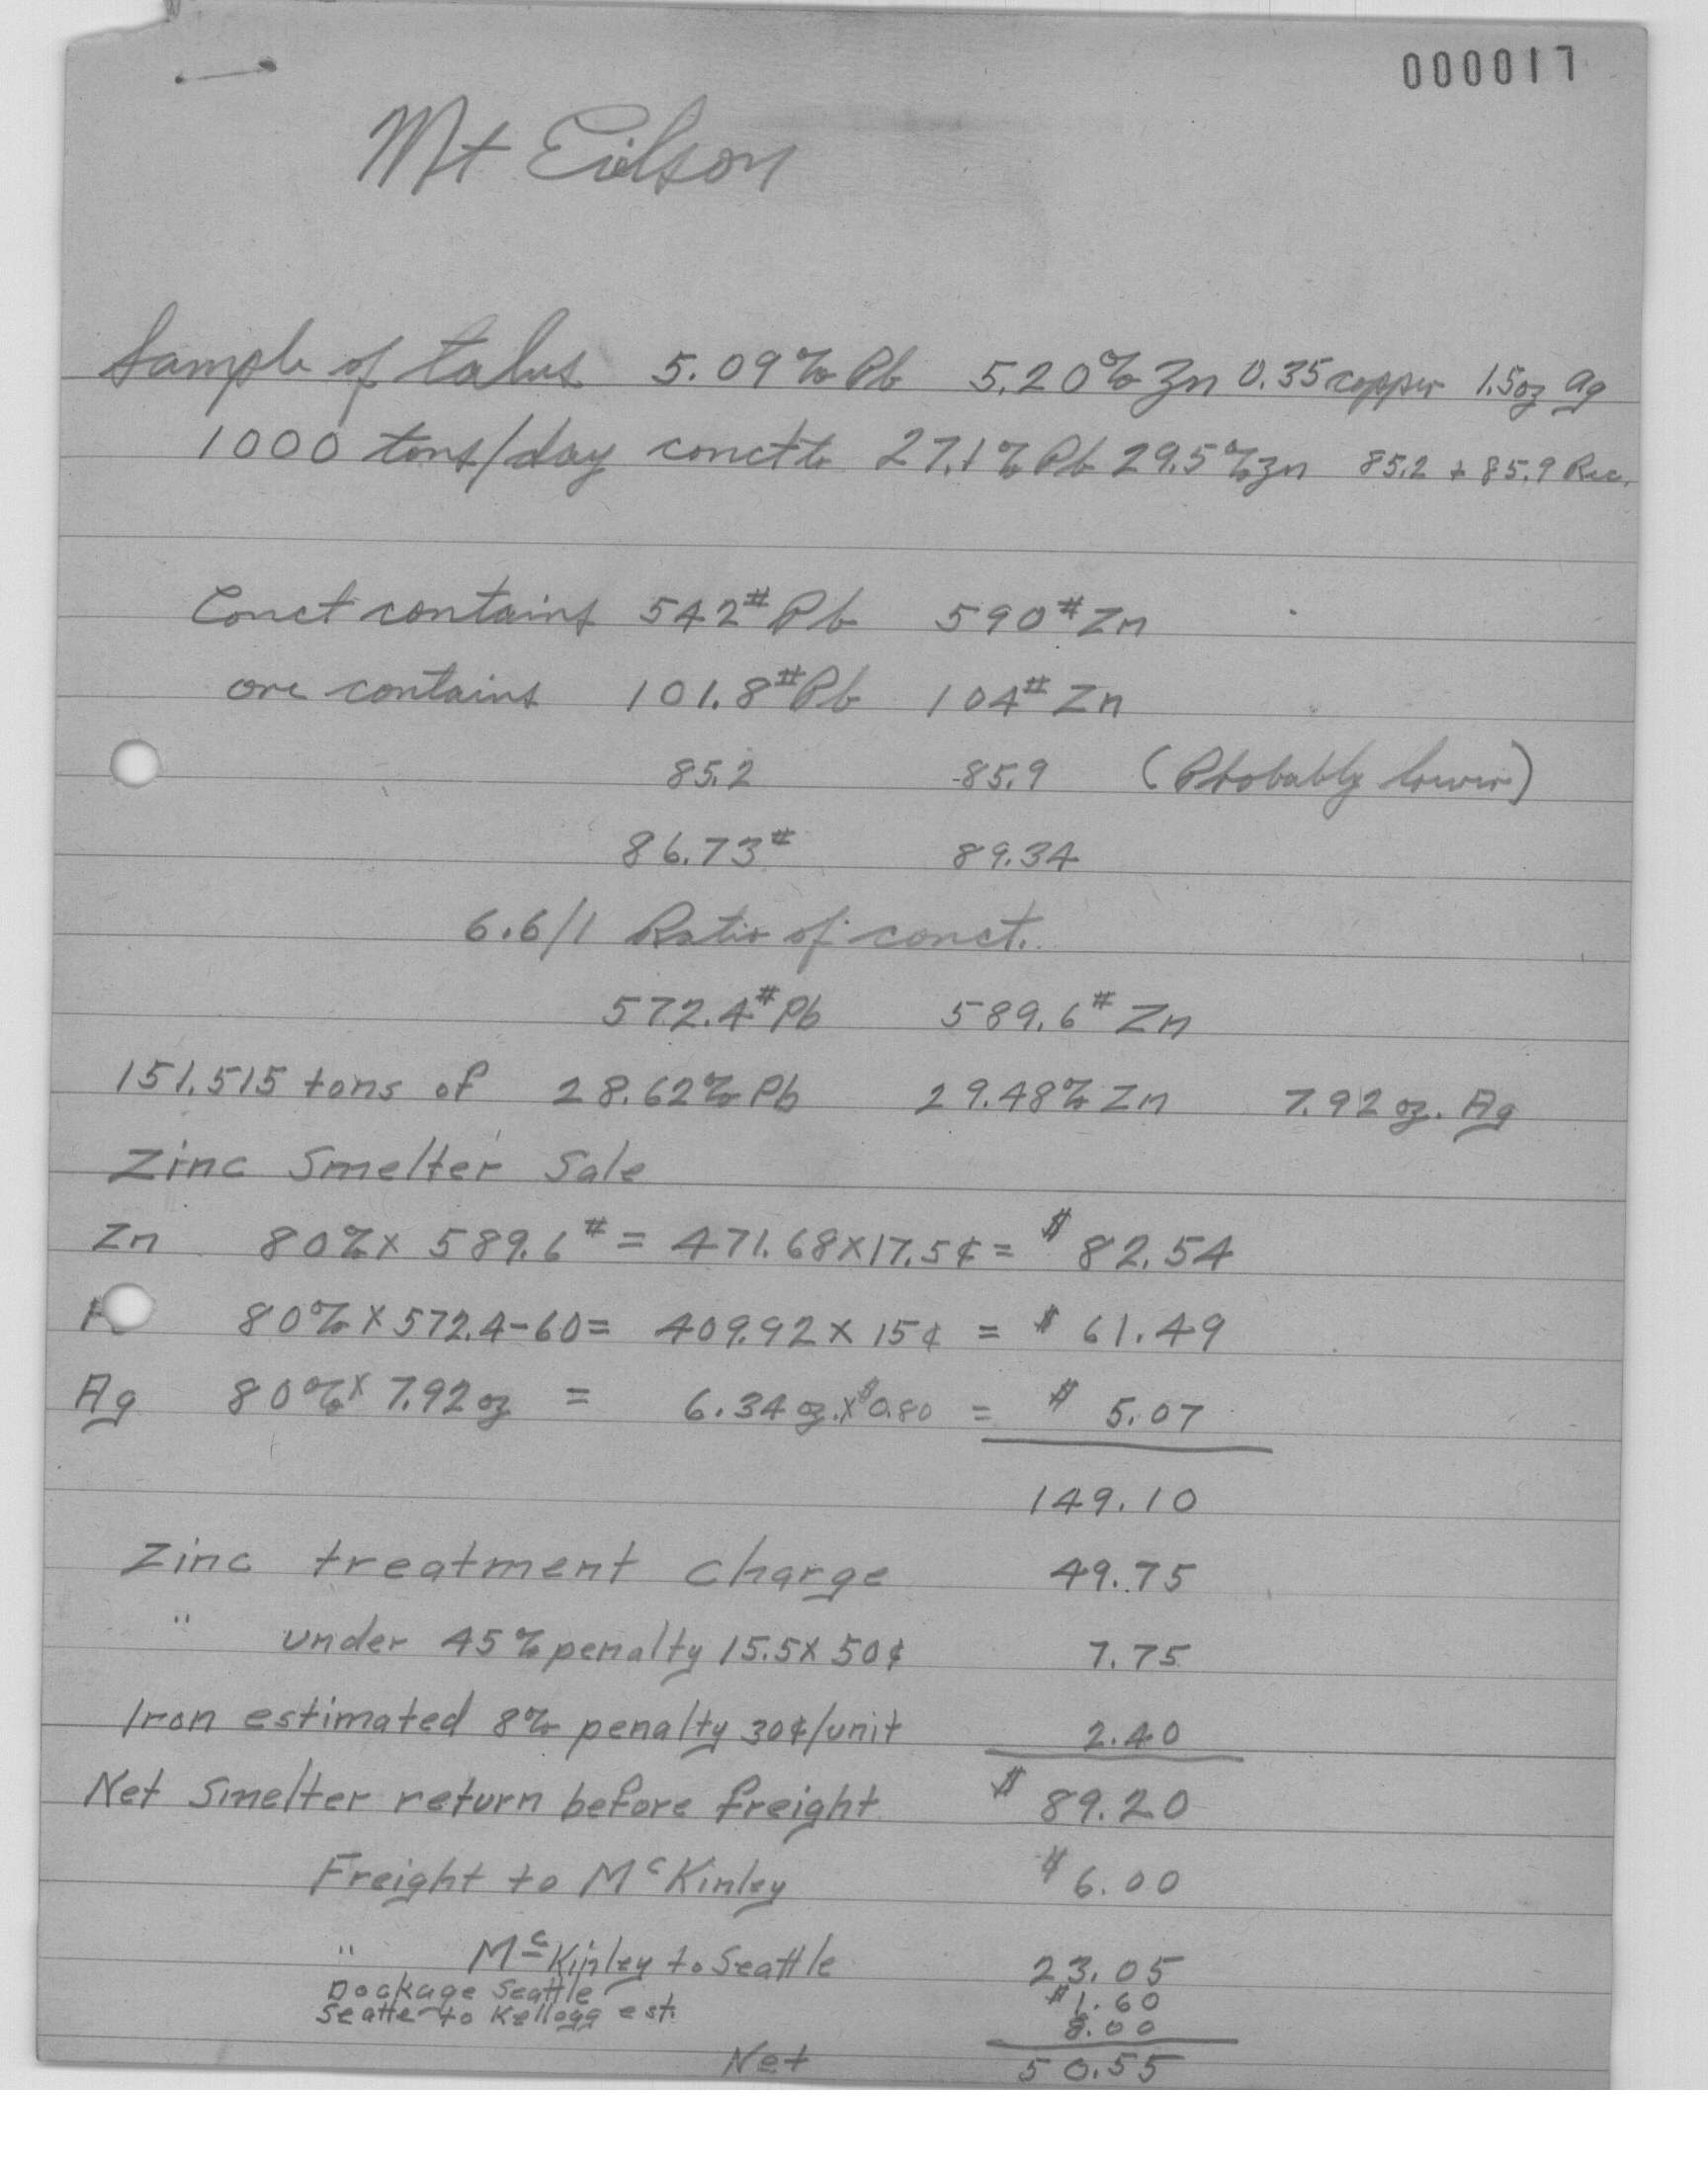 000017
Mt Eielson
Sample of talus 5.09% Pb 5.20% Zn 0.35 copper 1.5oz Ag
1000 tons/day conctte 27.1% Pb 29.5% Zn 85.2 + 85.9 Rec.
Conct contains 542# Pb 590# Zn
ore contains 101.8# Pb 104# Zn
85.2 85.9 (Probably lower)
86.73# 89.34
6.6/1 Ratio of conct.
572.4# Pb 589.6# Zn
151.515 tons of 28.62% Pb 29.48% Zn 7.92 oz. Ag
Zinc Smelter Sale
Zn 80% x 589.6# = 471.68 x 17.5¢ = $ 82.54
80% x 572.4-60 = 409.92 x 15¢ = $ 61.49
Ag 80% x 7.92 oz = 6.34 oz. x $0.80 = $ 5.07
149.10
Zinc treatment charge 49.75
" under 45% penalty 15.5 x 50¢ 7.75
Iron estimated 8% penalty 30¢/unit 2.40
Net Smelter return before freight $ 89.20
Freight to McKinley $ 6.00
" McKinley to Seattle 23.05
Dockage Seattle $1.60
Seattle to Kellogg est. 8.00
Net 50.55